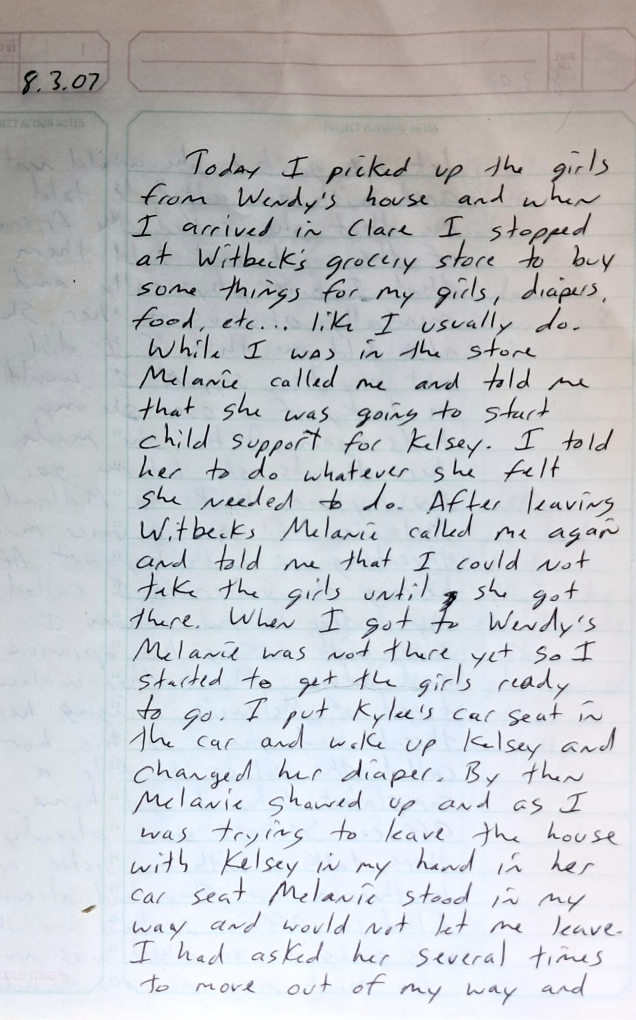 8.3.07
PROJECT PLANNING NOTES
Today I picked up the girls
from Wendy's house and when
I arrived in Clare I stopped
at Witbeck's grocery store to buy
some things for my girls, diapers,
food, etc... like I usually do.
While I was in the store
Melanie called me and told me
that she was going to start
child support for Kelsey. I told
her to do whatever she felt
she needed to do. After leaving
Witbecks Melanie called me again
and told me that I could not
take the girls until she got
there. When I got to Wendy's
Melanie was not there yet so I
started to get the girls ready
to go. I put Kylee's car seat in
the car and woke up Kelsey and
changed her diaper. By then
Melanie showed up and as I
was trying to leave the house
with Kelsey in my hand in her
car seat Melanie stood in my
way and would not let me leave.
I had asked her several times
to move out of my way and